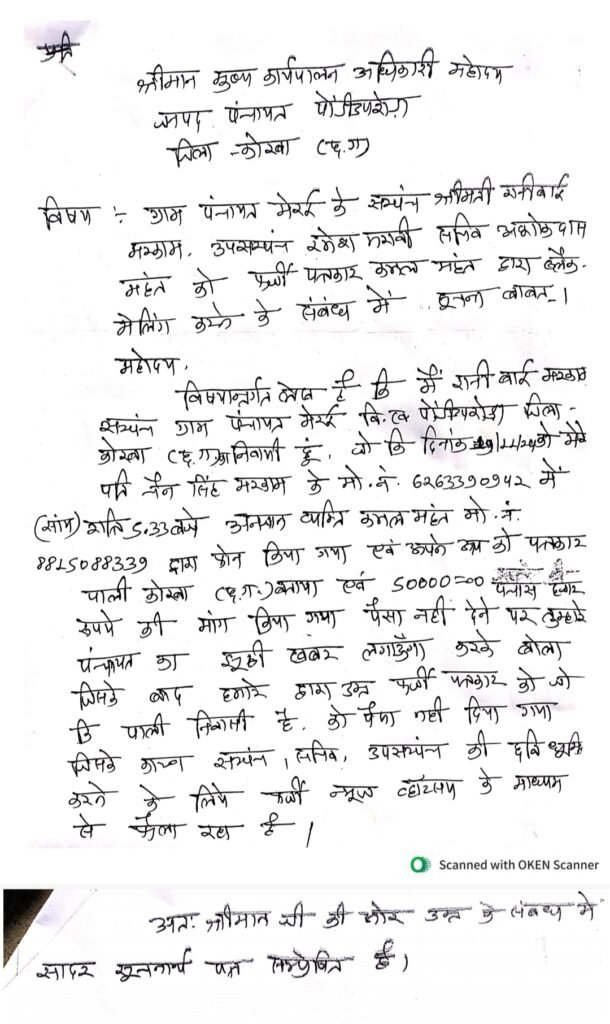 प्रति
श्रीमान मुख्य कार्यपालन अधिकारी महोदय
जनपद पंचायत पोंडीउपरोड़ा
जिला -कोरबा (छ.ग)
विषय :- ग्राम पंचायत मेरई के सरपंच श्रीमती रानीबाई
मरकाम, उपसरपंच रमेश मरावी सचिव अशोकदास
महंत को फर्जी पत्रकार कमल महंत द्वारा ब्लैक-
मेलिंग करने के संबंध में सूचना बाबत्।
महोदय,
विषयान्तर्गत लेख है कि मैं रानी बाई मरकाम
सरपंच ग्राम पंचायत मेरई वि.ख पोंडीउपरोड़ा जिला-
कोरबा (छ.ग) निवासी हूं, जो कि दिनांक को मेरे
पति जैन सिंह मरकाम के मो.नं. 6263390942 में
(सांय) रात्रि 5.33 बजे अनजान व्यक्ति कमल महंत मो.नं.
8815088339 द्वारा फोन किया गया एवं अपने आप को पत्रकार
पाली कोरबा (छ.ग.) बताया एवं 50000=00 पचास हजार
रुपये की मांग किया गया पैसा नही देने पर तुम्हारे
पंचायत का झूठी खबर लगाऊंगा करके बोला
जिसके बाद हमारे द्वारा उक्त फर्जी पत्रकार को जो
कि पाली निवासी है, को पैसा नही दिया गया
जिसके कारण सरपंच, सचिव, उपसरपंच की छवि धूमिल
करने के लिये फर्जी न्यूज व्हॉटसप के माध्यम
से फैला रहा है।
Scanned with OKEN Scanner
अतः श्रीमान जी की ओर उक्त के संबंध मे
सादर सूचनार्थ पत्र सम्प्रेषित है।